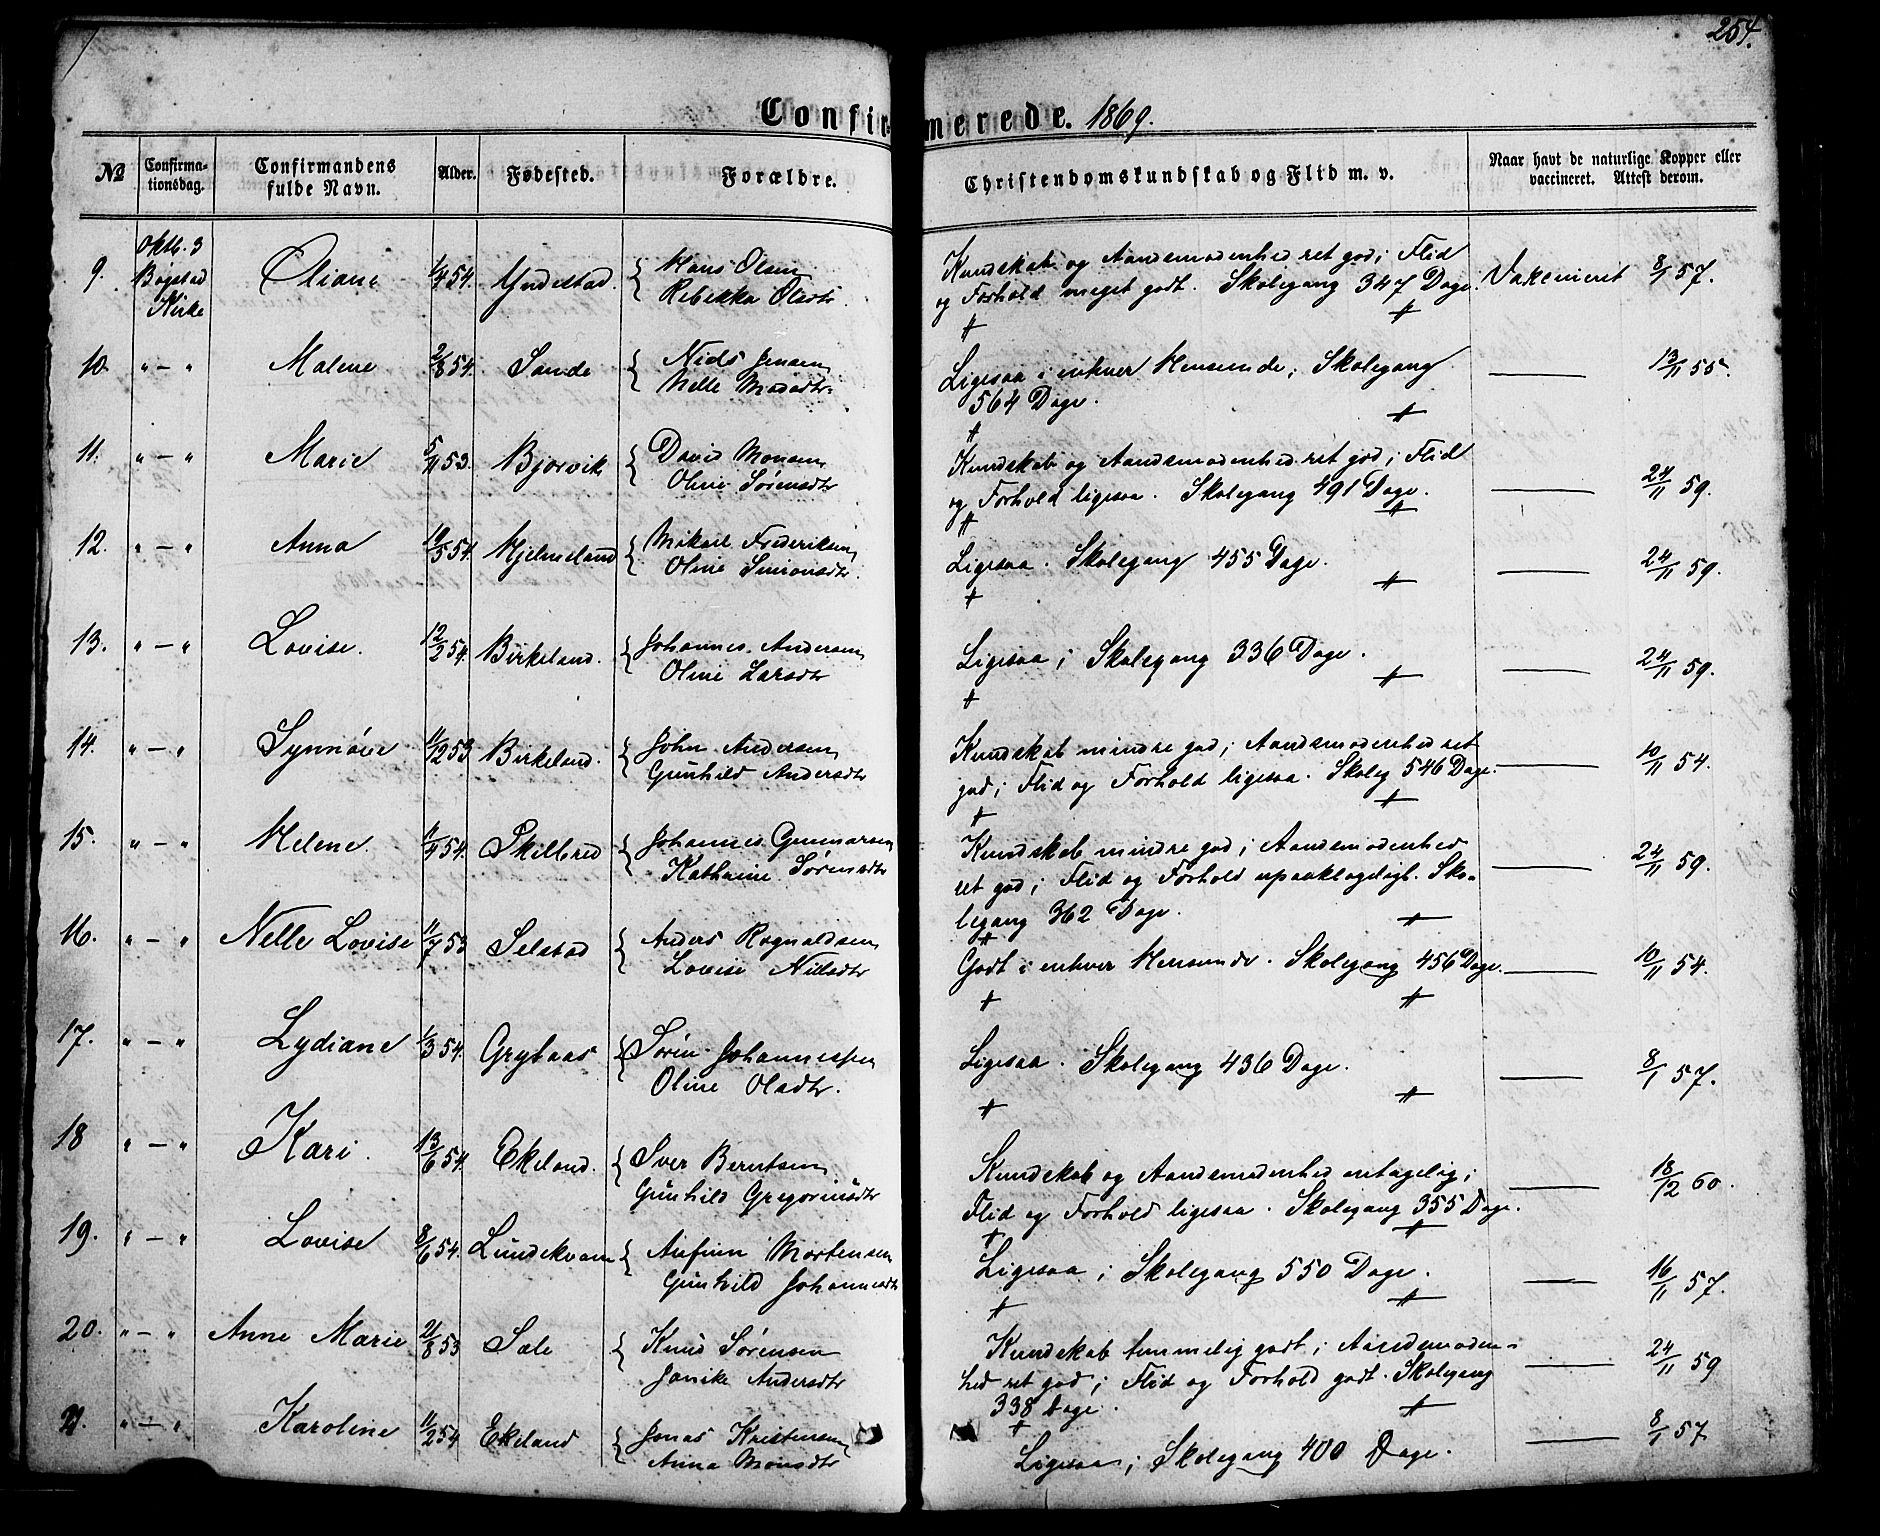 254.
Confirmerede. 1869.
№ Confirmationsdag. Confirmandens fulde Navn. Alder. Fødested. Forældre. Christendomskundskab og Flid m. v. Naar havt de naturlige Kopper eller vaccineret. Attest derom.
9. Oktb. 3 Bygstad Kirke Oliane 1/4 54. Yndestad { Hans Olsen Rebekka Olsdtr. Kundskab og Aandsmodenhed ret god; Flid
og Forhold meget godt. Skolegang 347 Dage. Vakcineret 8/1 57.
10. " — " Malene 2/8 54. Sande { Nils Jensen Nelle Madsdtr. Ligesaa i enhver Henseende; Skolegang
564 Dage. —— 13/11 55.
11. " — " Marie 5/11 53. Bjorvik { David Monsen Oline Sørensdtr Kundskab og Aandsmodenhed ret god; Flid
og Forhold ligesaa. Skolegang 491 Dage. —— 24/11 59.
12. " — " Anna 19/5 54. Hjelmeland { Mikael Frederiksen Oline Simonsdtr. Ligesaa. Skolegang 455 Dage. —— 24/11 59.
13. " — " Lovise. 12/2 54. Birkeland. { Johannes Andersen Oline Larsdtr Ligesaa; Skolegang 336 Dage. —— 24/11 59.
14. " — " Synnøve 11/12 53 Birkeland. { John Andersen Gunhild Andersdtr Kundskab mindre god; Aandsmodenhed ret
god; Flid og Forhold ligesaa. Skoleg 546 Dage. —— 10/11 54.
15. " — " Helene 11/4 54. Skilbred { Johannes Gunnarsen Kathrine Sørensdtr Kundskab mindre god; Aandsmodenhed
ret god; Flid og Forhold upaaklageligt. Sko-
legang 362 Dage. —— 24/11 59.
16. " — " Nelle Lovise 11/7 53 Selstad { Anders Rognaldsen Lovise Nilsdtr Godt i enhver Henseende. Skolegang 456 Dage. —— 10/11 54.
17. " — " Lydiane 1/3 54. Grytaas { Søren Johannessen Oline Olsdtr. Ligesaa. Skolegang 436 Dage. —— 8/1 57.
18 " — " Kari. 13/6 54. Ekeland. { Iver Berntsen Gunhild Gregoriusdtr Kundskab og Aandsmodenhed antagelig;
Flid og Forhold ligesaa. Skolegang 355 Dage. —— 18/12 60.
19. " — " Lovise 8/6 54. Lundekvam { Anfinn Mortensen Gunhild Johannesdtr Ligesaa; Skolegang 550 Dage. —— 16/11 57.
20. " — " Anne Marie 21/8 53 Sæle { Knud Sørensen Janike Andersdtr Kundskab temmelig godt; Aandsmoden-
hed ret god; Flid og Forhold godt. Skolegang
338 Dage. —— 24/11 59
21. " — " Karoline 11/2 54 Ekeland { Jonas Kristensen Anna Monsdtr Ligesaa; Skolegang 400 Dage. —— 8/1 57